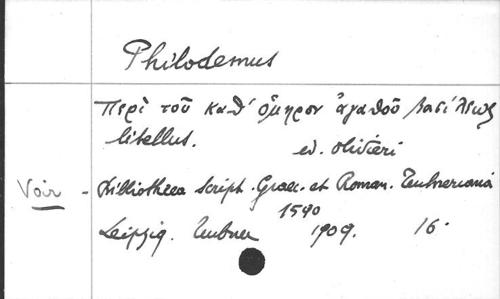 Philodemus
περὶ τοῦ καθ' ὅμηρον ἀγαθοῦ βασιλεως
libellus. ed. olivieri
Voir - Bibliotheca Script. Graec. et Roman. Teubneriana
1590
Leipzig. Teubner 1909. 16°